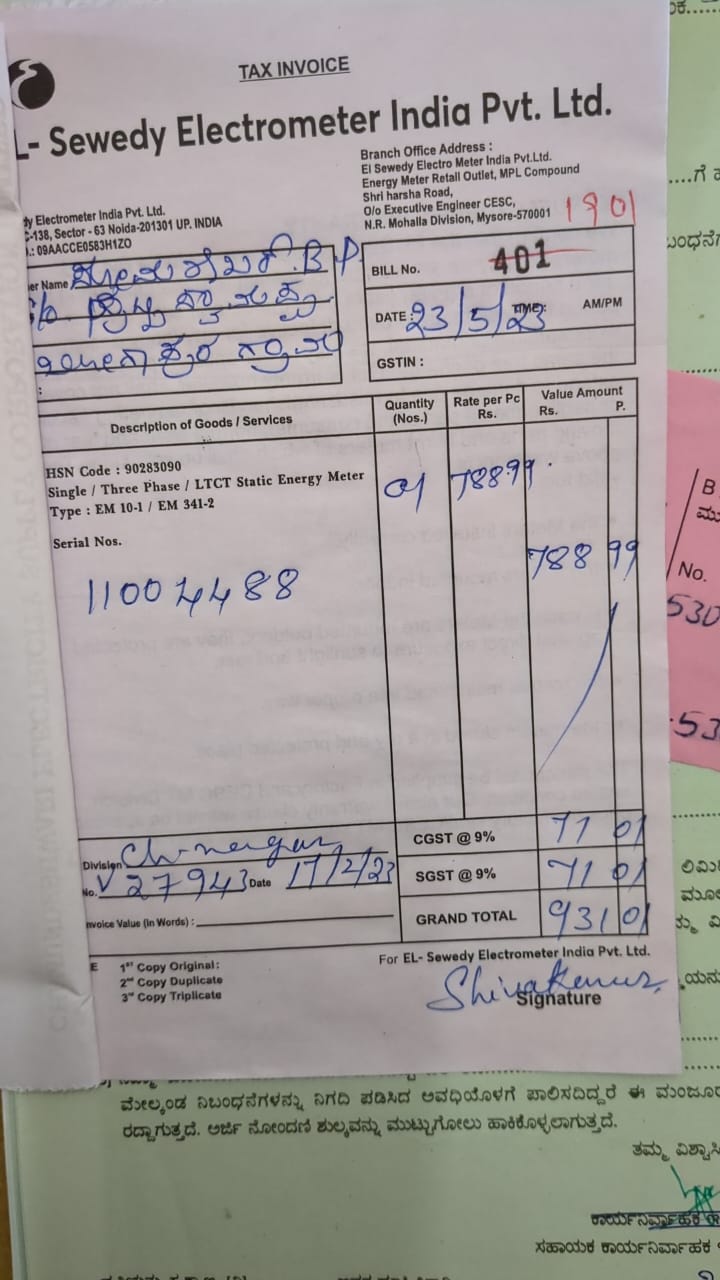 TAX INVOICE
L- Sewedy Electrometer India Pvt. Ltd.
Branch Office Address :
El Sewedy Electro Meter India Pvt.Ltd.
Energy Meter Retail Outlet, MPL Compound
Shri harsha Road,
O/o Executive Engineer CESC,
N.R. Mohalla Division, Mysore-570001
dy Electrometer India Pvt. Ltd.
C-138, Sector - 63 Noida-201301 UP. INDIA
.: 09AACCE0583H1ZO
1901
er Name
BILL No. 401
DATE : 23/5/23 AM/PM
GSTIN :
Description of Goods / Services
Quantity (Nos.)
Rate per Pc Rs.
Value Amount
Rs. P.
HSN Code : 90283090
Single / Three Phase / LTCT Static Energy Meter
Type : EM 10-1 / EM 341-2
01 788 99
Serial Nos.
788 99
11004488
CGST @ 9% 71 01
Division Ch-nagar
SGST @ 9% 71 01
No. 27943 Date 17/2/23
GRAND TOTAL 931 01
nvoice Value (in Words) :
For EL- Sewedy Electrometer India Pvt. Ltd.
E 1st Copy Original :
2nd Copy Duplicate
3rd Copy Triplicate
Shivakumar
Signature
No.
530
53
ಮೇಲ್ಕಂಡ ನಿಬಂಧನೆಗಳನ್ನು ನಿಗದಿ ಪಡಿಸಿದ ಅವಧಿಯೊಳಗೆ ಪಾಲಿಸದಿದ್ದರೆ ಈ ಮಂಜೂರ
ರದ್ದಾಗುತ್ತದೆ. ಅರ್ಜಿ ನೋಂದಣಿ ಶುಲ್ಕವನ್ನು ಮುಟ್ಟುಗೋಲು ಹಾಕಿಕೊಳ್ಳಲಾಗುತ್ತದೆ.
ತಮ್ಮ ವಿಶ್ವಾಸಿ
ಕಾರ್ಯನಿರ್ವಾಹಕ
ಸಹಾಯಕ ಕಾರ್ಯನಿರ್ವಾಹಕ